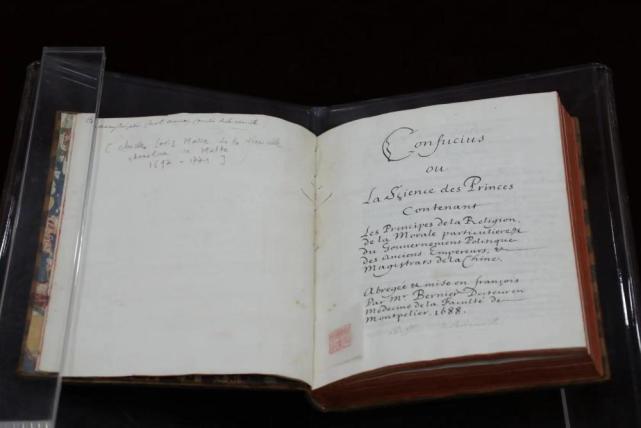 Malte
1697 - 1771 ]
Confucius
ou
La Sçience des Princes
Contenant
Les Principes de la Religion,
de la Morale particuliere &
du Gouvernement Politique
des Anciens Empereurs, &
Magistrats de la Chine.
Abregée & mise en françois
Par Mr Bernier Docteur en
Médecine de la Faculté de
Montpelier, 1688.